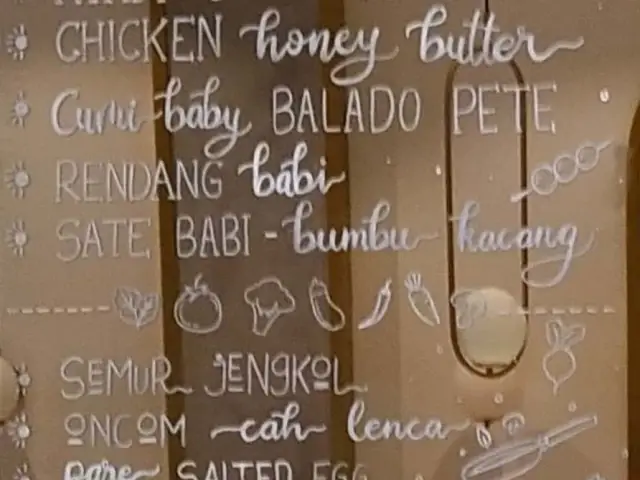 CHICKEN honey butter
Cumi baby BALADO PETE
RENDANG babi
SATE BABI - bumbu kacang
SEMUR JENGKOL
ONCOM cah lenca
Pare SALTED EGG